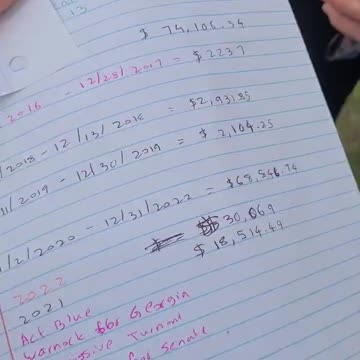 13
$ 74,106.34
2016 - 12/28/2017 = $2237
/2018 - 12/13/2018 = $2,931.85
/2019 - 12/30/2019 = $ 2,104.25
/2/2020 - 12/31/2022 = $68,546.74
$ 30,069
$ 18,514.49
2022
2021
Act Blue
Warnock for Georgia
Turnout
for Senate.